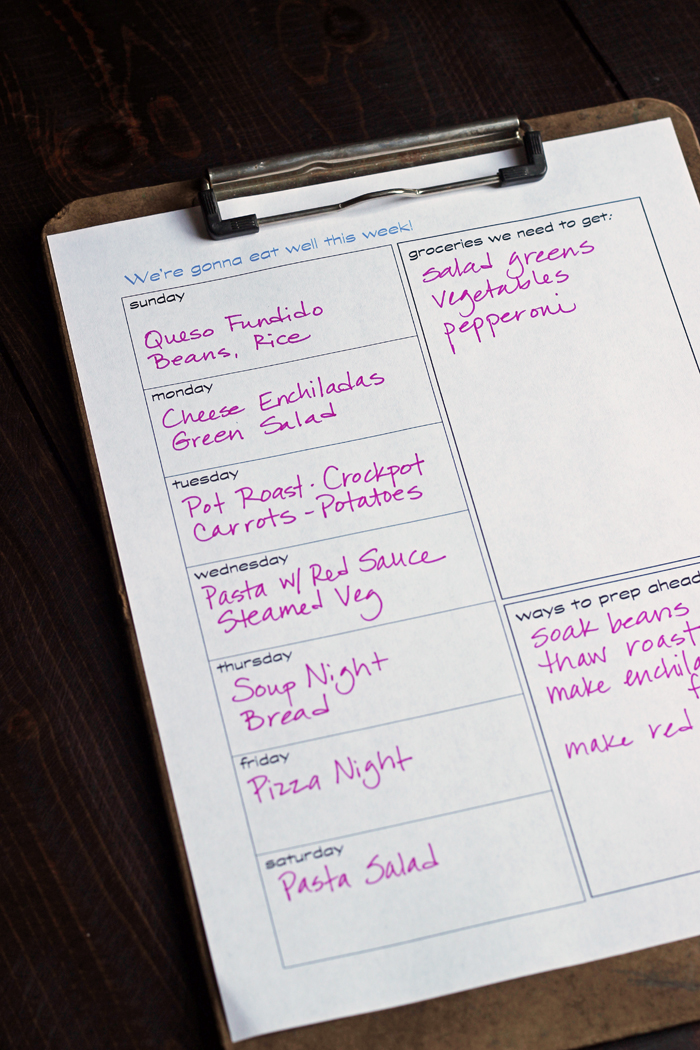 We're gonna eat well this week!
sunday
Queso Fundido
Beans, Rice
monday
Cheese Enchiladas
Green Salad
tuesday
Pot Roast · Crockpot
Carrots - Potatoes
wednesday
Pasta w/ Red Sauce
Steamed Veg
thursday
Soup Night
Bread
friday
Pizza Night
saturday
Pasta Salad
groceries we need to get:
salad greens
vegetables
pepperoni
ways to prep ahead
soak beans
thaw roast
make
make red